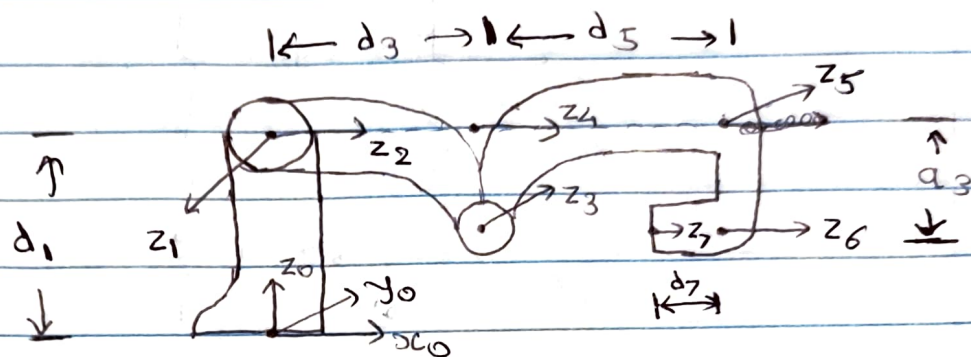 d3 d5
z5
z4
z2
a3
z3
d1
z1
z7 z6
z0
y0
d7
x0